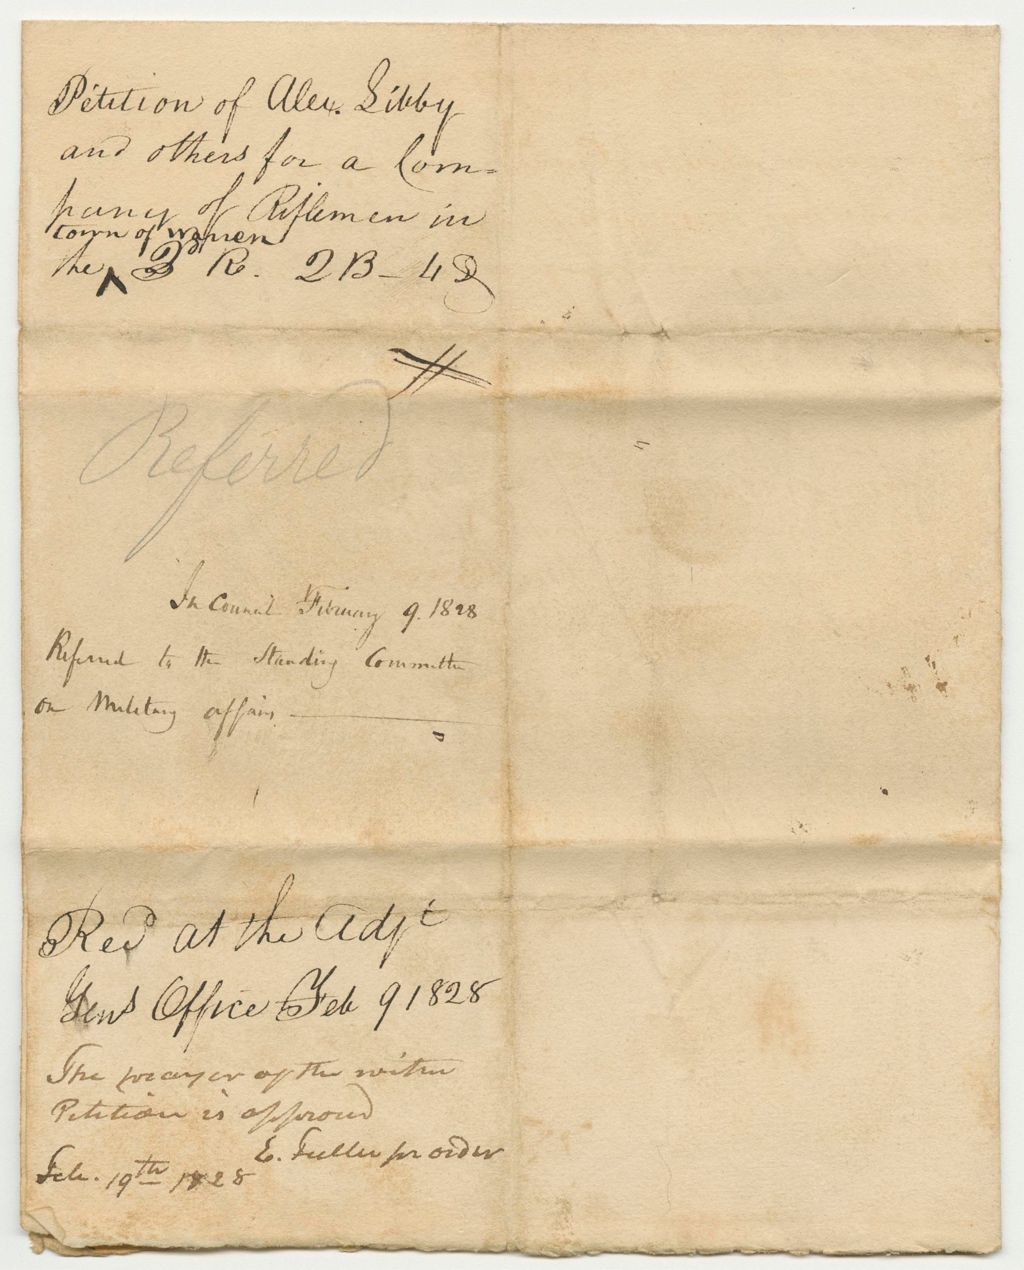 Petition of Alex. Libby
and others for a Com=
pany of Riflemen in
town of Warren
the ^ 3d R. 2 B - 4 D
Referred
In Council February 9. 1828
Referred to the Standing Committee
on Military affairs.
Recd at the Adjt
Genls Office Feb 9 1828
The prayer of the within
Petition is approved
E. Fuller pr order
Feb. 19th 1828